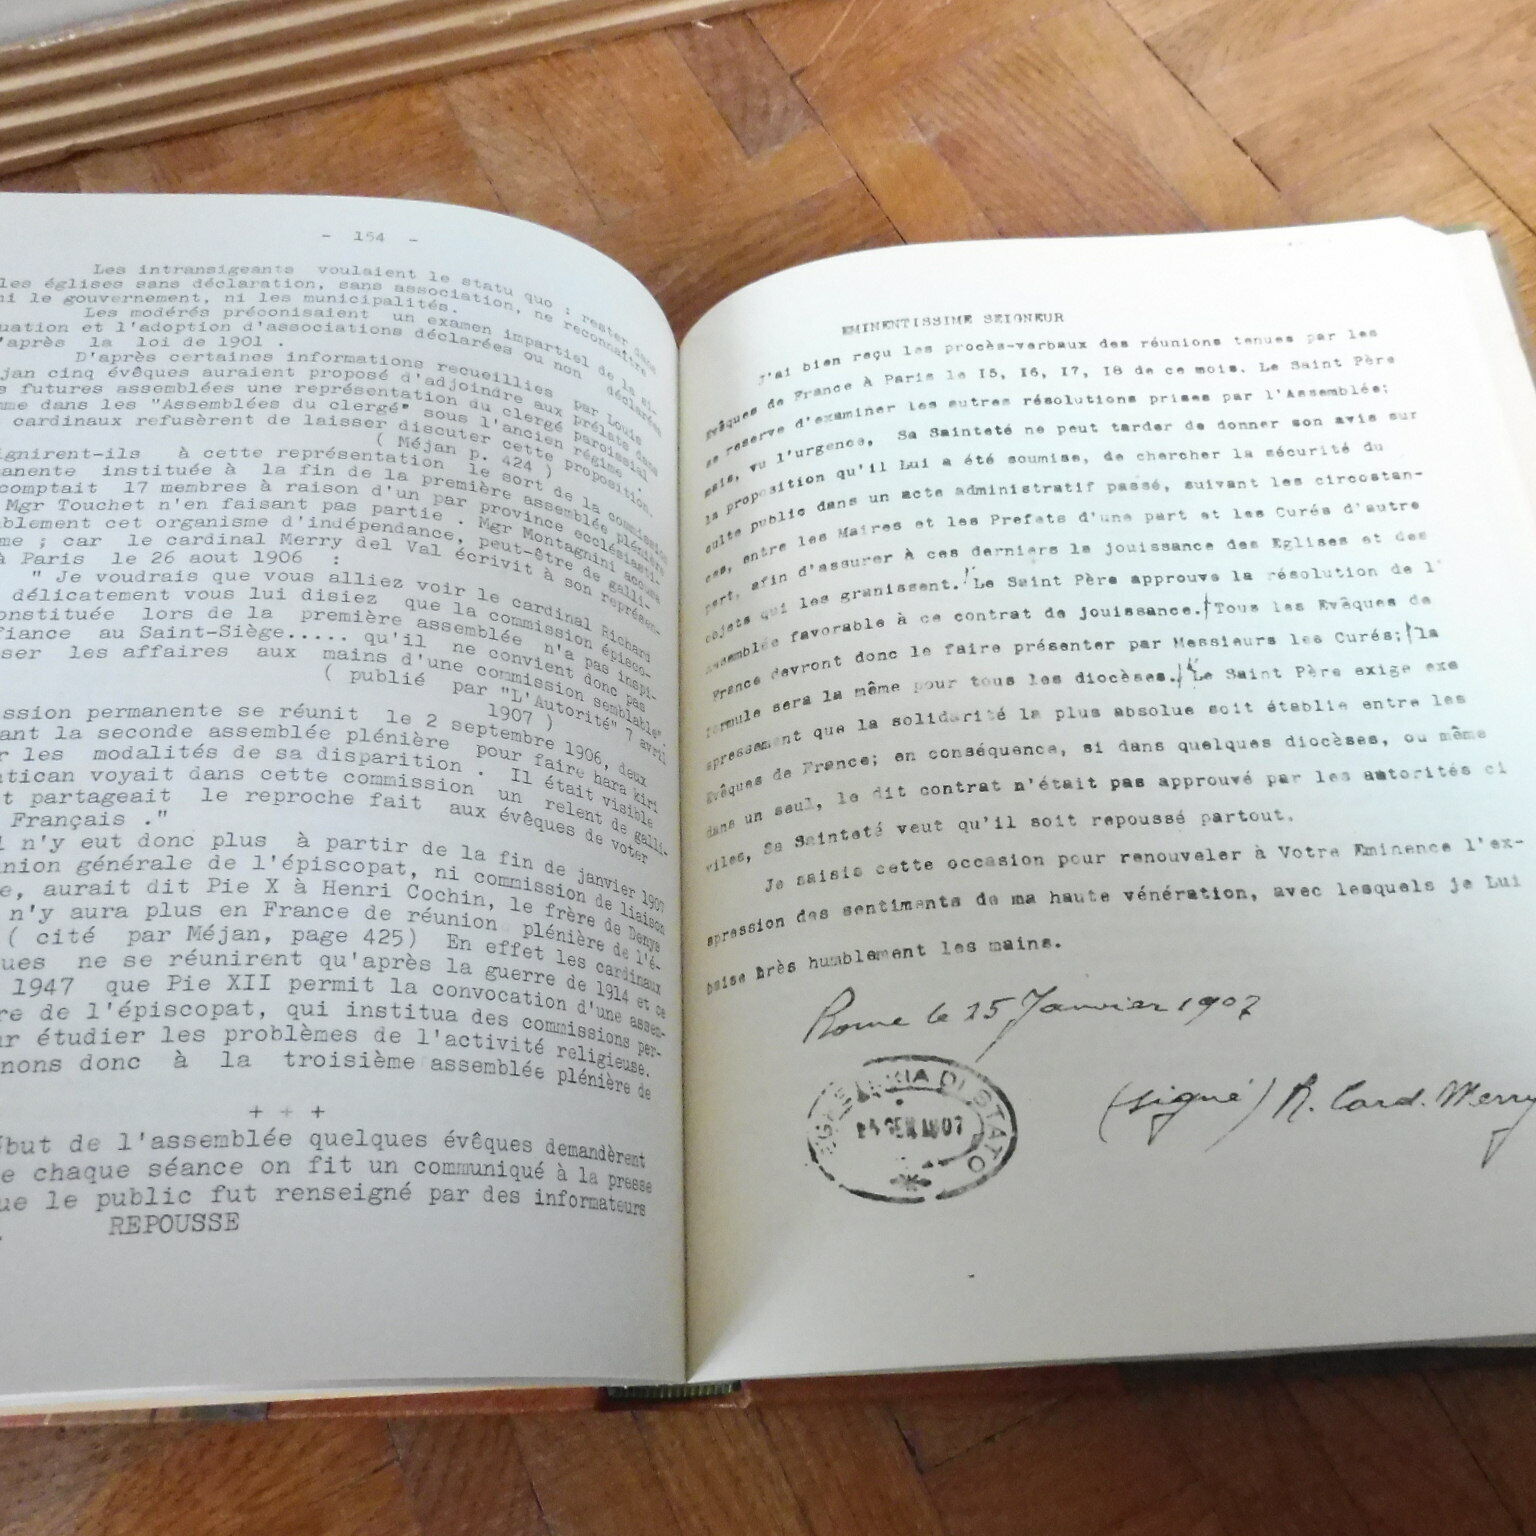 - 154 -
Les intransigeants voulaient le statu quo : rester dans
les églises sans déclaration, sans association, ne reconnaître
ni le gouvernement, ni les municipalités.
Les modérés préconisaient un examen impartial de la si-
uation et l'adoption d'associations déclarées ou non déclarées
'après la loi de 1901 .
D'après certaines informations recueillies par Louis
jan cinq évêques auraient proposé d'adjoindre aux prélats dans
s futures assemblées une représentation du clergé paroissial
mme dans les "Assemblées du clergé" sous l'ancien régime .
cardinaux refusèrent de laisser discuter cette proposition.
( Méjan p. 424 )
ignirent-ils à cette représentation le sort de la commission
manente instituée à la fin de la première assemblée plénière
comptait 17 membres à raison d'un par province ecclésiasti-
Mgr Touchet n'en faisant pas partie . Mgr Montagnini accusa
blement cet organisme d'indépendance, peut-être de galli-
me ; car le cardinal Merry del Val écrivit à son représen-
à Paris le 26 aout 1906 :
" Je voudrais que vous alliez voir le cardinal Richard
délicatement vous lui disiez que la commission épisco-
onstituée lors de la première assemblée n'a pas inspi-
fiance au Saint-Siège..... qu'il ne convient donc pas
ser les affaires aux mains d'une commission semblable".
( publié par "L'Autorité" 7 avril
1907 )
ission permanente se réunit le 2 septembre 1906, deux
ant la seconde assemblée plénière pour faire hara kiri
r les modalités de sa disparition . Il était visible
atican voyait dans cette commission un relent de galli-
t partageait le reproche fait aux évêques de voter
Français ."
l n'y eut donc plus à partir de la fin de janvier 1907
union générale de l'épiscopat, ni commission de liaison
e, aurait dit Pie X à Henri Cochin, le frère de Denys
n'y aura plus en France de réunion plénière de l'é-
( cité par Méjan, page 425) En effet les cardinaux
ues ne se réunirent qu'après la guerre de 1914 et ce
1947 que Pie XII permit la convocation d'une assem-
re de l'épiscopat, qui institua des commissions per-
ur étudier les problèmes de l'activité religieuse.
nons donc à la troisième assemblée plénière de
+ + +
ébut de l'assemblée quelques évêques demandèrent
e chaque séance on fit un communiqué à la presse
ue le public fut renseigné par des informateurs
REPOUSSE
EMINENTISSIME SEIGNEUR
J'ai bien reçu les procès-verbaux des réunions tenues par les
Evêques de France à Paris le 15, 16, 17, 18 de ce mois. Le Saint Père
se reserve d'examiner les autres résolutions prises par l'Assemblée;
mais, vu l'urgence, Sa Sainteté ne peut tarder de donner son avis sur
la proposition qu'il Lui a été soumise, de chercher la sécurité du
culte public dans un acte administratif passé, suivant les circostan-
ces, entre les Maires et les Prefets d'une part et les Curés d'autre
part, afin d'assurer à ces derniers la jouissance des Eglises et des
objets qui les granissent. Le Saint Père approuve la résolution de l'
Assemblée favorable à ce contrat de jouissance. Tous les Evêques de
France devront donc le faire présenter par Messieurs les Curés; la
formule sera la même pour tous les diocèses. Le Saint Père exige exe
spressement que la solidarité la plus absolue soit établie entre les
Evêques de France; en conséquence, si dans quelques diocèses, ou même
dans un seul, le dit contrat n'était pas approuvé par les autorités ci
viles, Sa Sainteté veut qu'il soit repoussé partout.
Je saisis cette occasion pour renouveler à Votre Eminence l'ex-
spression des sentiments de ma haute vénération, avec lesquels je Lui
baise très humblement les mains.
Rome le 25 Janvier 1907
SEGRETERIA DI STATO
(signé) R. Card. Merry